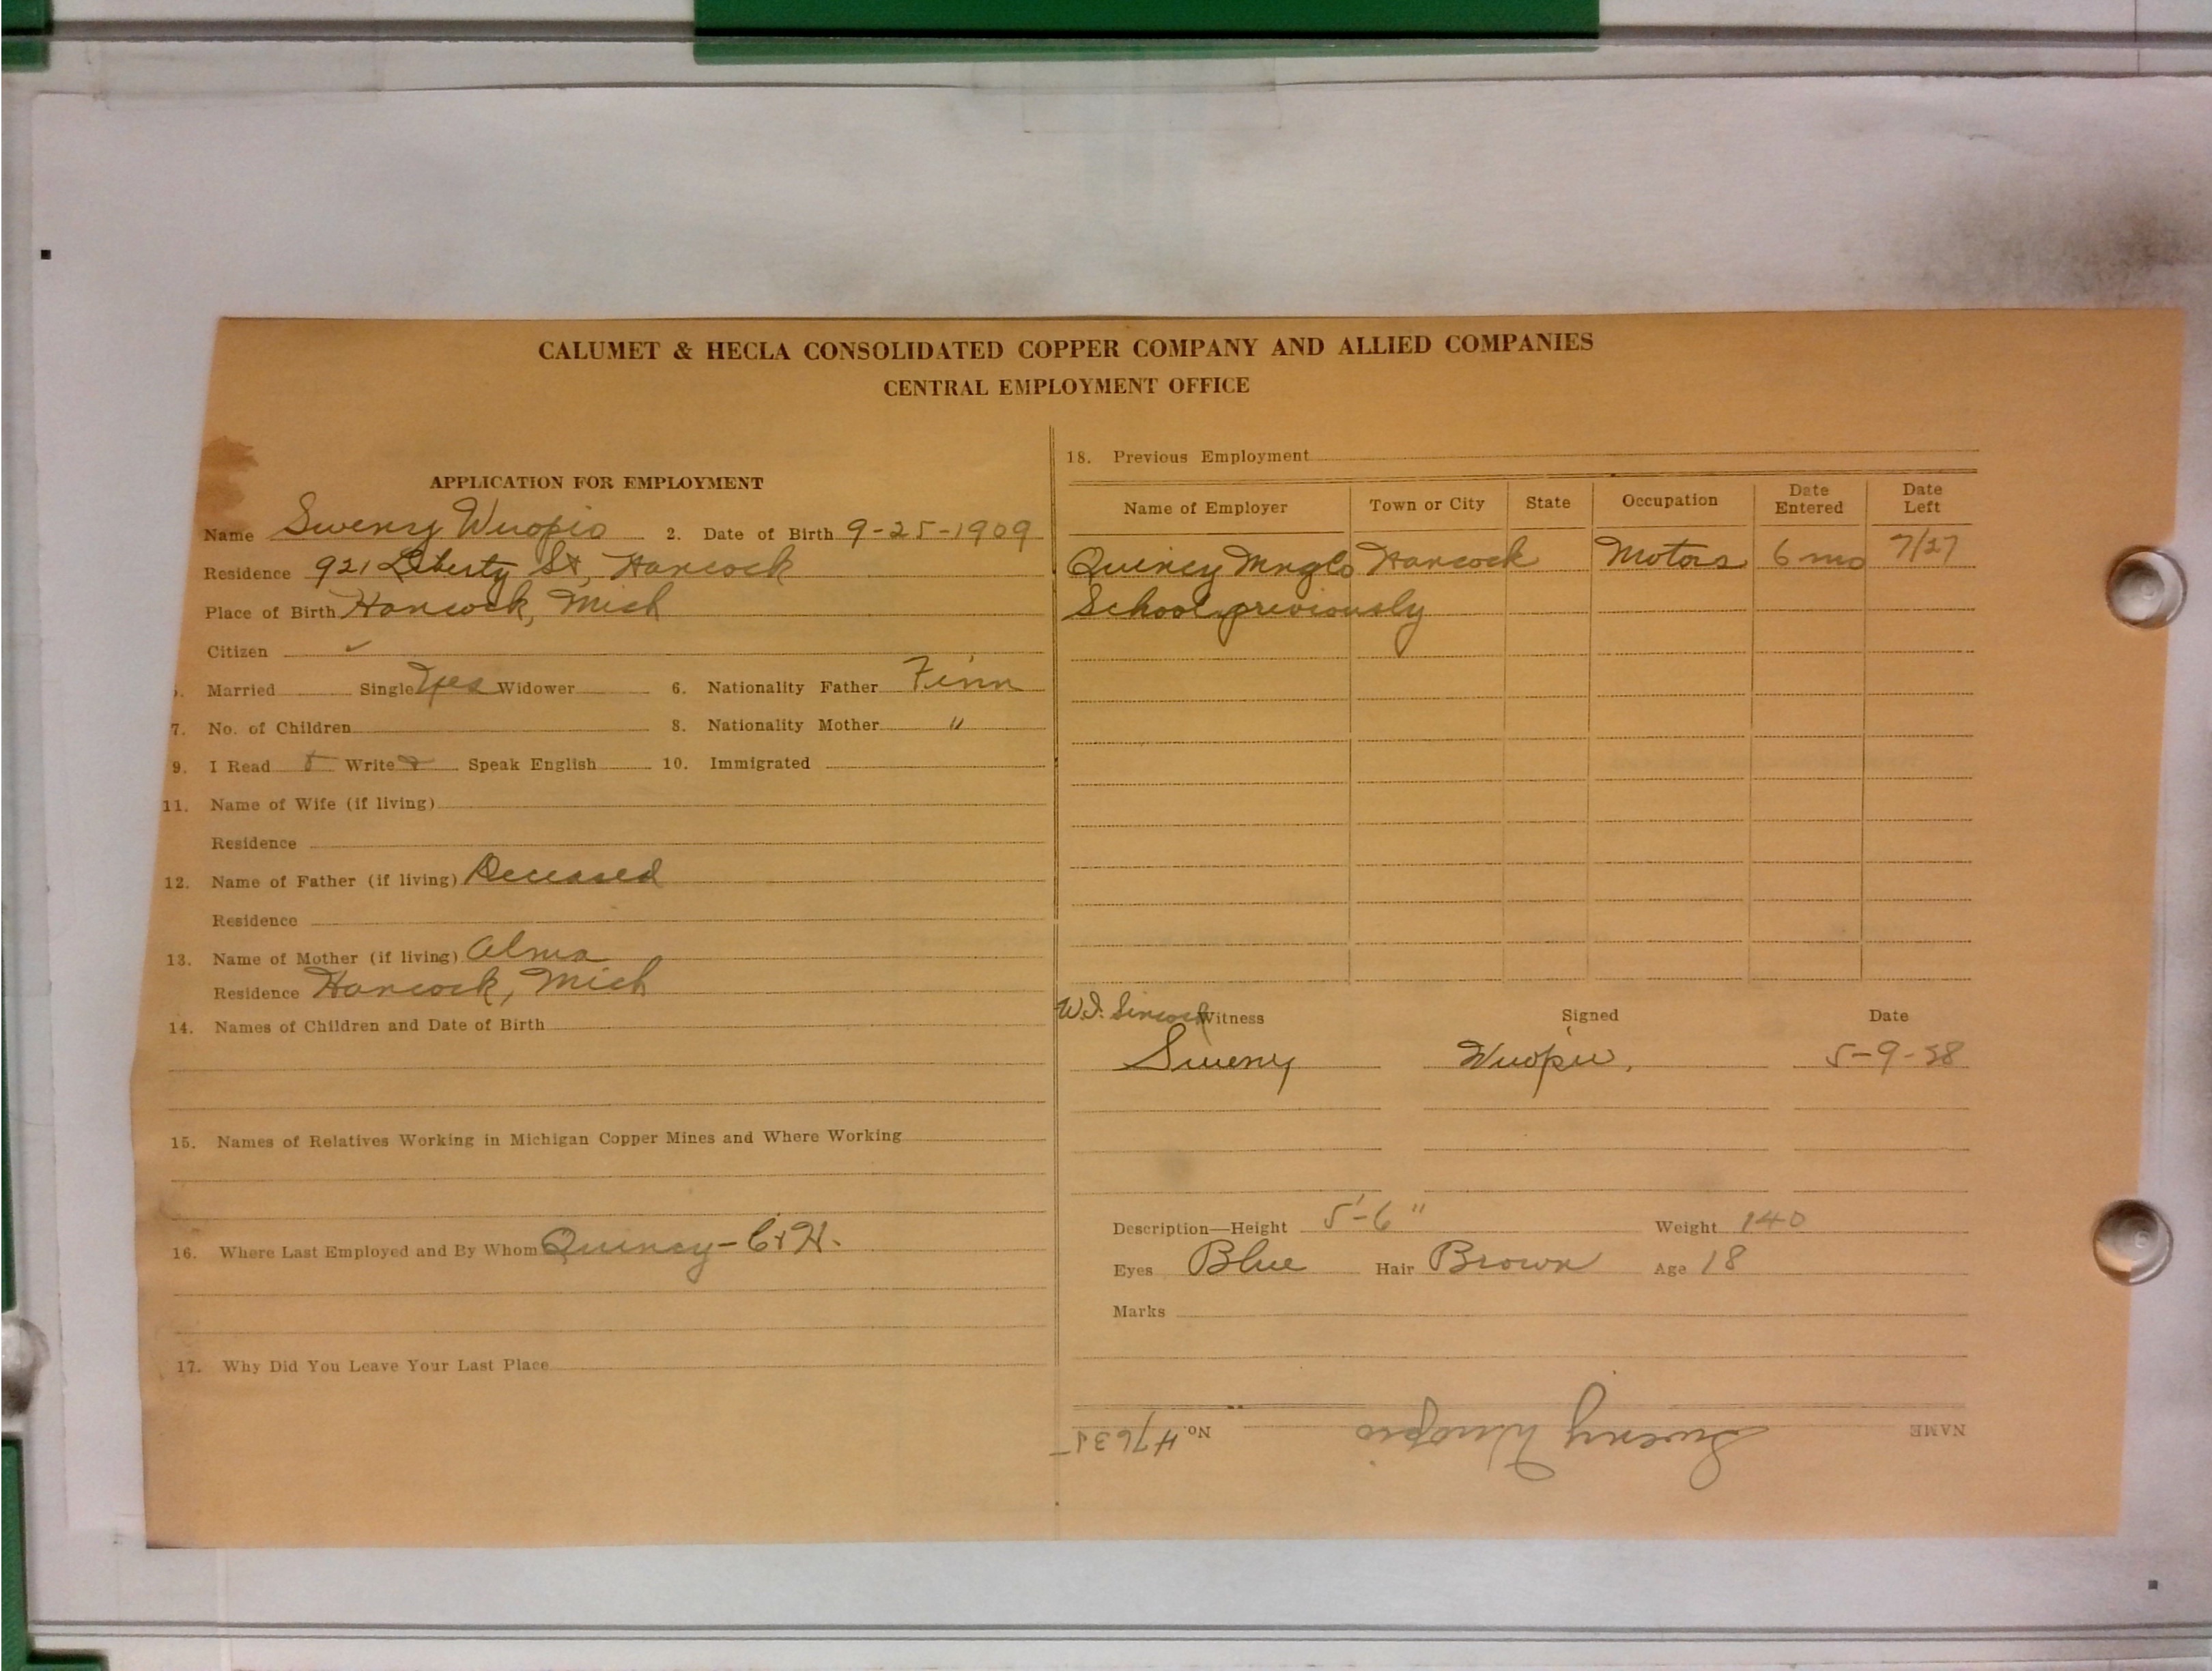 CALUMET & HECLA CONSOLIDATED COPPER COMPANY AND ALLIED COMPANIES
CENTRAL EMPLOYMENT OFFICE
APPLICATION FOR EMPLOYMENT
Name Sweny Wuopio 2. Date of Birth 9-25-1909
Residence 921 Liberty St, Hancock
Place of Birth Hancock, Mich
Citizen ✓
Married Single Yes Widower 6. Nationality Father Finn
7. No. of Children 8. Nationality Mother "
9. I Read Write Speak English 10. Immigrated
11. Name of Wife (if living)
Residence
12. Name of Father (if living) Deceased
Residence
13. Name of Mother (if living) Alma
Residence Hancock, Mich
14. Names of Children and Date of Birth
15. Names of Relatives Working in Michigan Copper Mines and Where Working
16. Where Last Employed and By Whom Quincy - C & H.
17. Why Did You Leave Your Last Place
18. Previous Employment
Name of Employer Town or City State Occupation Date Entered Date Left
Quincy Mng Co Hancock Motors 6 mo 7/27
School previously
W.J. Witness Signed Date
Sweny Wuopio. 5-9-28
Description—Height 5'-6" Weight 140
Eyes Blue Hair Brown Age 18
Marks
NAME Sweny Wuopio No. #7635